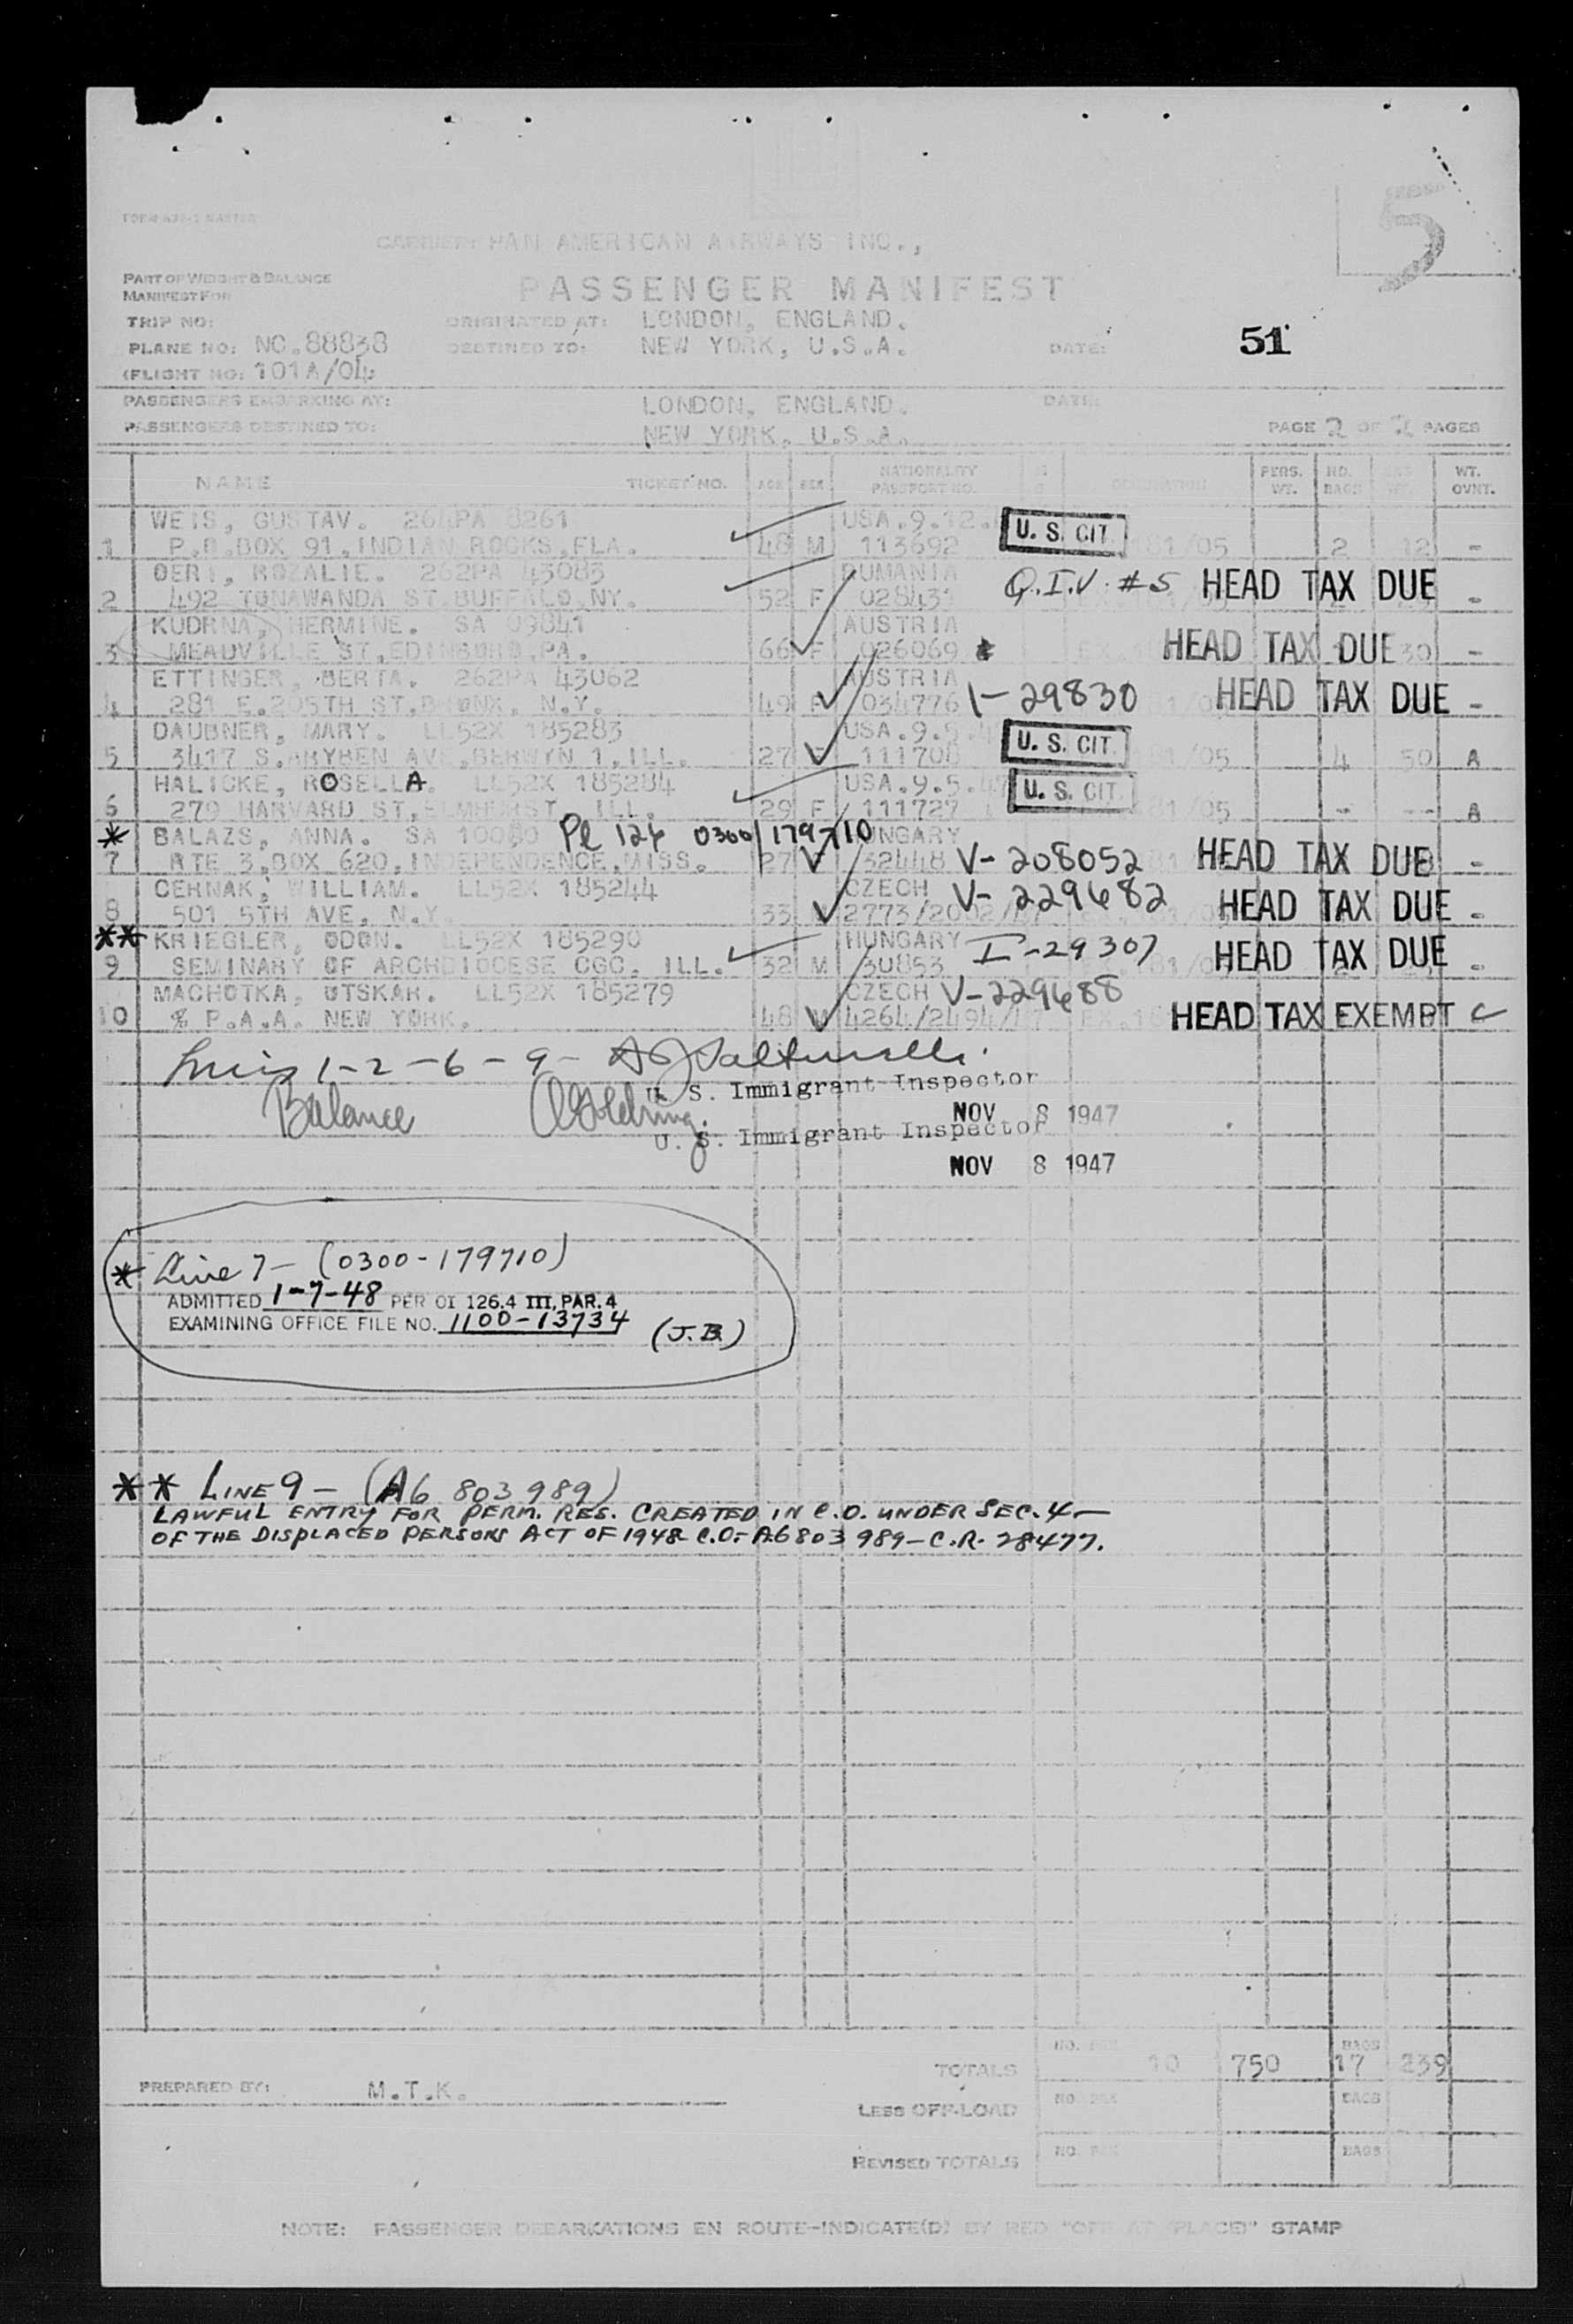 5
FORM
CARRIER: PAN AMERICAN AIRWAYS INC.,
PART OF WEIGHT & BALANCE
MANIFEST FOR
PASSENGER MANIFEST
TRIP NO:
ORIGINATED AT: LONDON, ENGLAND.
PLANE NO: NC.88838 DESTINED TO: NEW YORK, U.S.A. DATE: 51
(FLIGHT NO: 101A/04
PASSENGERS EMBARKING AT: LONDON, ENGLAND. DATE:
PASSENGERS DESTINED TO: NEW YORK, U.S.A. PAGE 2 OF 2 PAGES
NAME TICKET NO. AGE SEX NATIONALITY PASSPORT NO. DESTINATION PERS. WT. NO. BAGS WT. WT. OVNT.
WEIS, GUSTAV. 262PA 8261 USA.9.12. U. S. CIT
1 P.O.BOX 91,INDIAN ROCKS,FLA. 48 M 113692 181/05 2 12 -
OERI, ROZALIE. 262PA 43083 RUMANIA Q.I.V. #5 HEAD TAX DUE
2 492 TONAWANDA ST.BUFFALO,NY. 52 F 028431 -
KUDRNA, HERMINE. SA 09841 AUSTRIA HEAD TAX DUE
3 MEADVILLE ST,EDINBORO,PA. 66 F 026069 30 -
ETTINGER, BERTA. 262PA 43062 AUSTRIA
4 281 E.205TH ST.BRONX, N.Y. 49 F 034776 1-29830 HEAD TAX DUE -
DAUBNER, MARY. LL52X 185283 USA.9.5. U. S. CIT.
5 3417 S. AVE,BERWYN 1,ILL. 27 F 111708 181/05 4 50 A
HALICKE, ROSELLA. LL52X 185284 USA.9.5.47 U. S. CIT.
6 279 HARVARD ST, ELMHURST, ILL. 29 F 111727 181/05 - -- A
* BALAZS, ANNA. SA 10080 Pl 126 0300/179710 HUNGARY
7 RTE 3,BOX 620,INDEPENDENCE,MISS. 27 F 32448 V-208052 HEAD TAX DUE -
CERNAK, WILLIAM. LL52X 185244 CZECH V-229682
8 501 5TH AVE, N.Y. 33 M 2773/2002/47 HEAD TAX DUE -
** KRIEGLER, ODON. LL52X 185290 HUNGARY I-29307
9 SEMINARY OF ARCHDIOCESE CGC, ILL. 32 M 30853 HEAD TAX DUE -
MACHOTKA, OTSKAR. LL52X 185279 CZECH V-229688
10 % P.A.A. NEW YORK. 48 M 4264/2494/47 HEAD TAX EXEMPT C
1-2-6-9-
U. S. Immigrant Inspector
Balance
NOV 8 1947
U. S. Immigrant Inspector
NOV 8 1947
* Line 7 - (0300-179710)
ADMITTED 1-7-48 PER OI 126.4 III, PAR. 4
EXAMINING OFFICE FILE NO. 1100-13734 (J.B.)
** LINE 9 - (A6 803 989)
LAWFUL ENTRY FOR PERM. RES. CREATED IN C.O. UNDER SEC. 4-
OF THE DISPLACED PERSONS ACT OF 1948 C.O.- A6803 989-C.R. 28477.
TOTALS 10 750 BAGS 17 239
PREPARED BY: M.T.K.
LESS OFF-LOAD NO. PAX BAGS
REVISED TOTALS NO. PAX BAGS
NOTE: PASSENGER DEBARKATIONS EN ROUTE-INDICATE(D) BY RED "OFF AT (PLACE)" STAMP